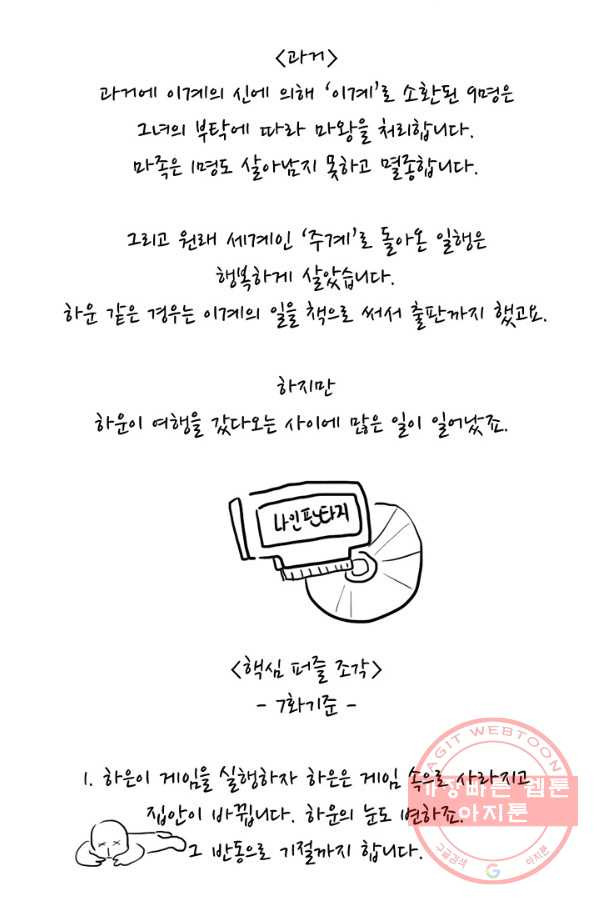 <과거>
과거에 이계의 신에 의해 '이계'로 소환된 9명은
그녀의 부탁에 따라 마왕을 처리합니다.
마족은 1명도 살아남지 못하고 멸종합니다.
그리고 원래 세계인 '주계'로 돌아온 일행은
행복하게 살았습니다.
하운 같은 경우는 이계의 일을 책으로 써서 출판까지 했고요.
하지만
하운이 여행을 갔다오는 사이에 많은 일이 일어났죠.
나인판타지
<핵심 퍼즐 조각>
- 7화기준 -
1. 하은이 게임을 실행하자 하은은 게임 속으로 사라지고
집안이 바뀝니다. 하운의 눈도 변하죠.
그 반동으로 기절까지 합니다.
AGIT WEBTOON
가장빠른 웹툰
아지툰
구글검색
G
아지툰